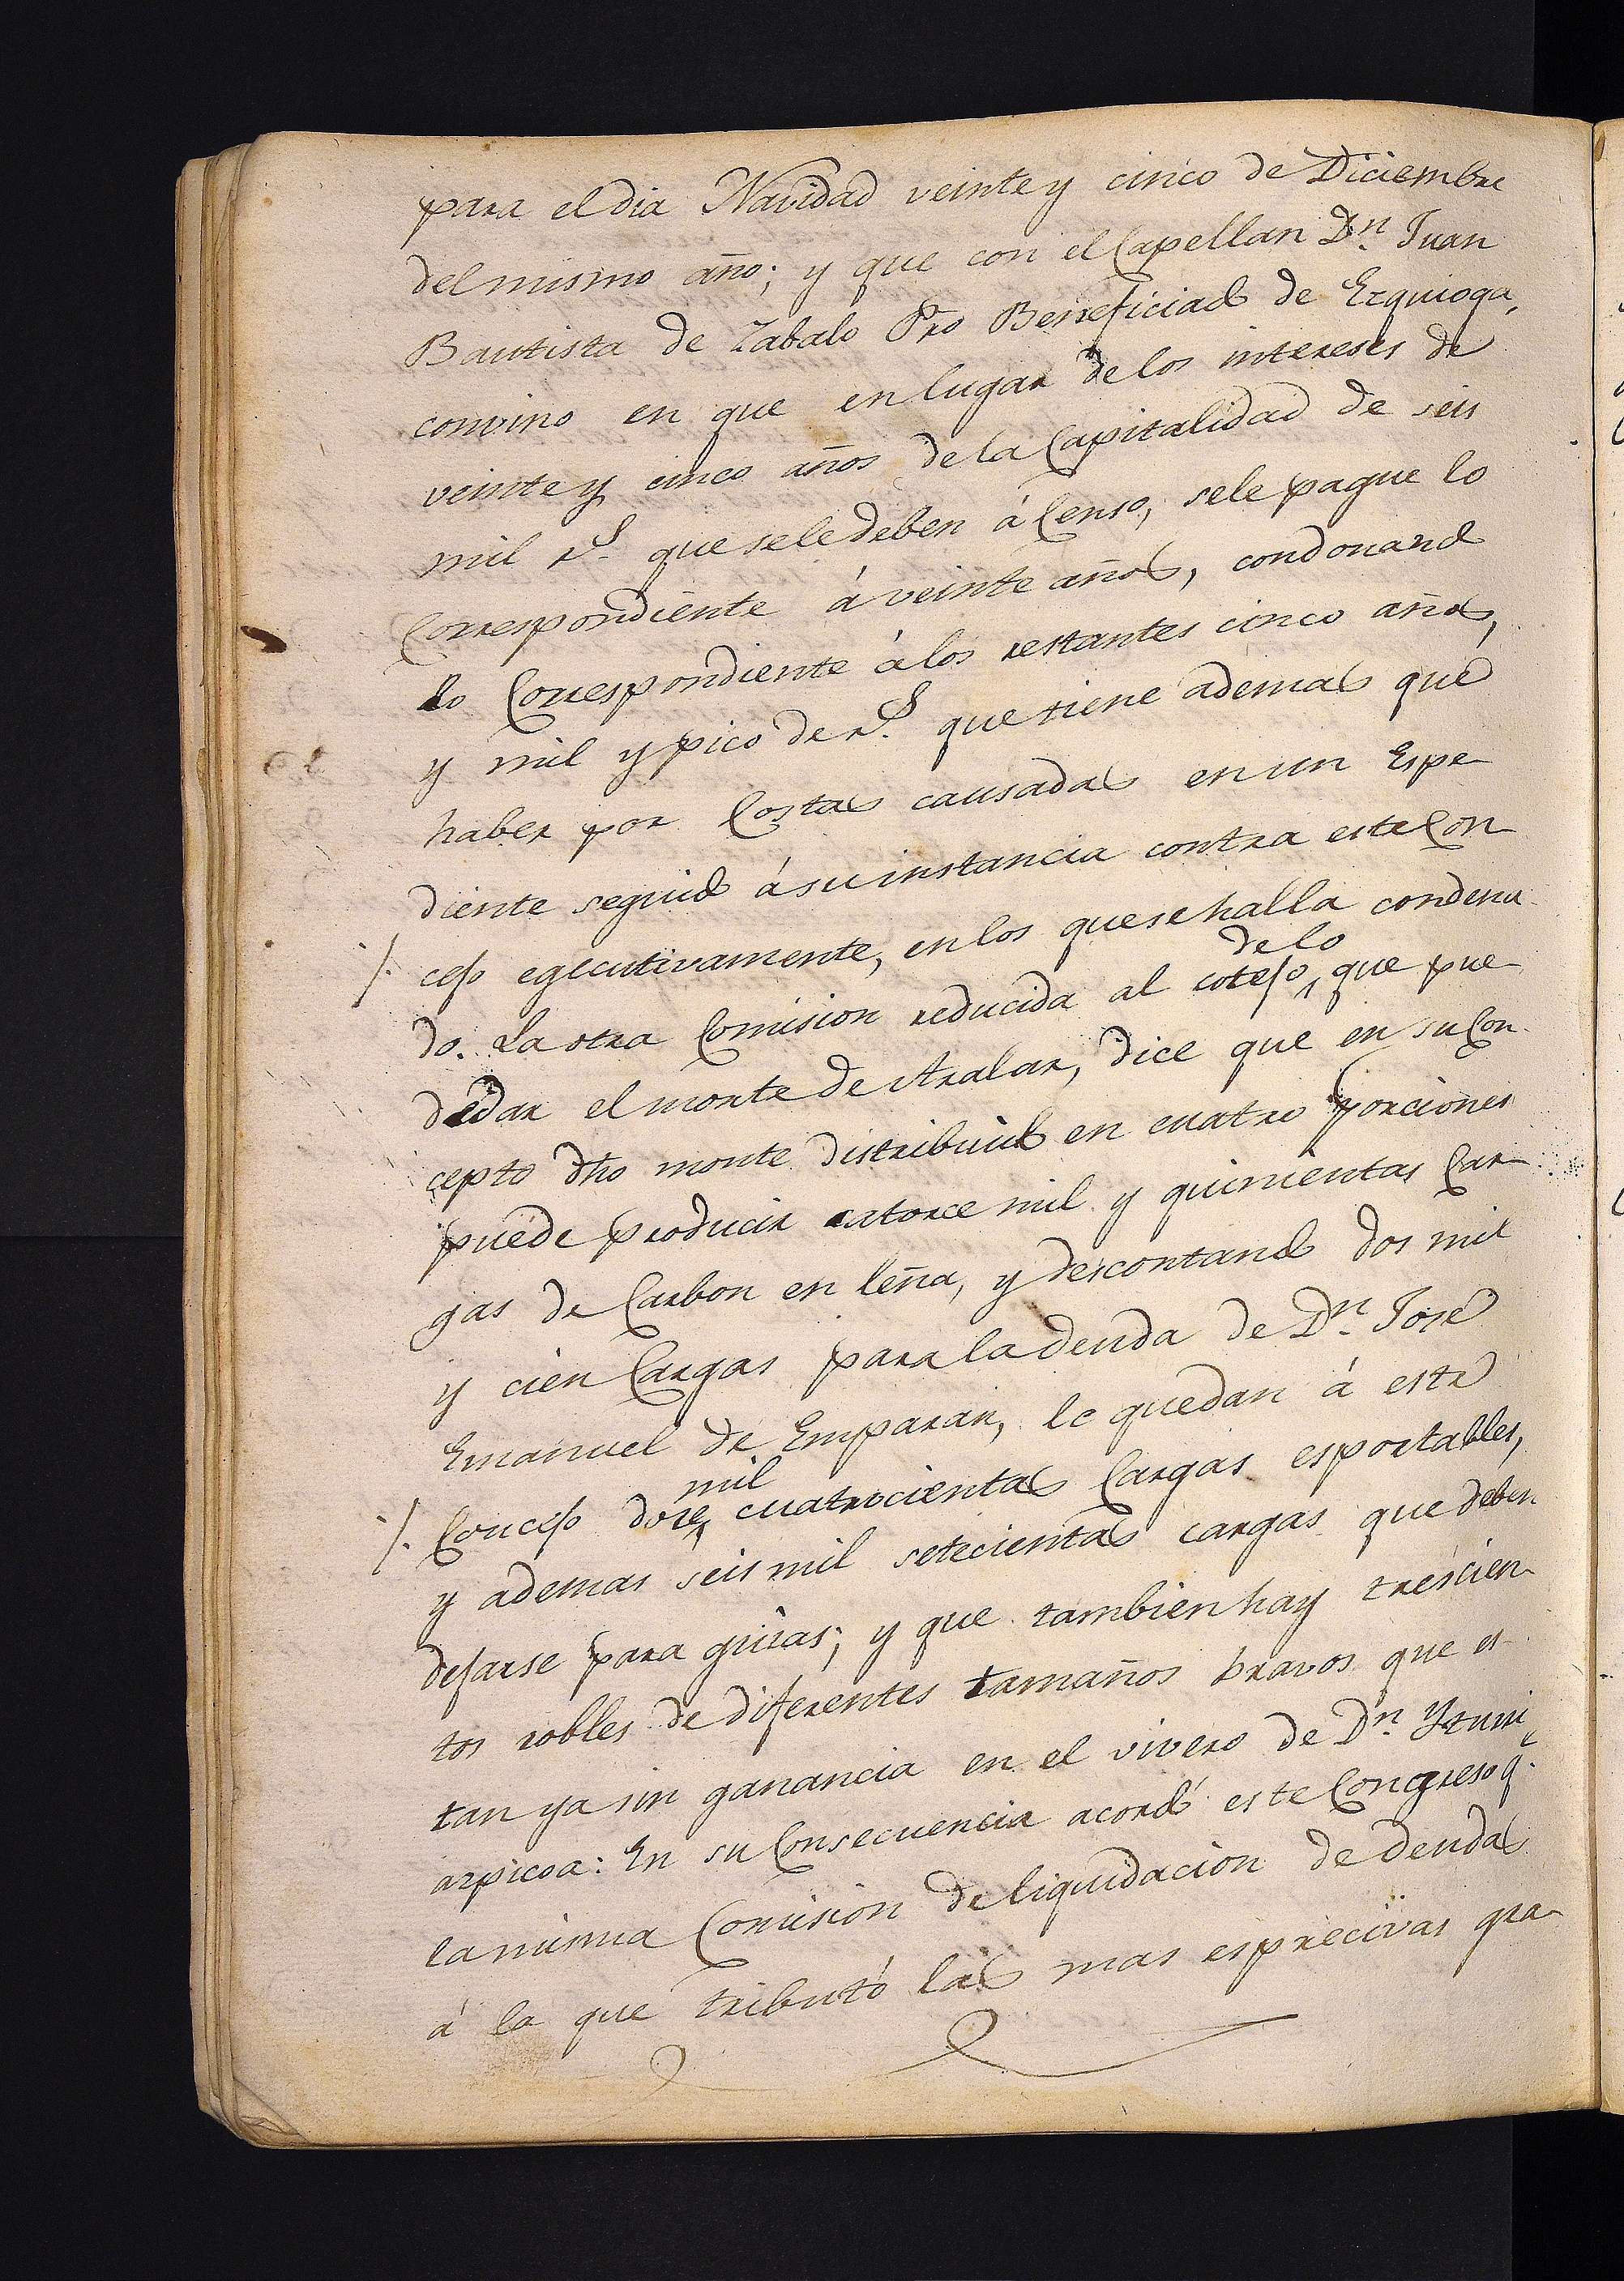 para el dia Navidad veinte y cinco de Diciembre
del mismo año; y que con el Capellan Dn. Juan
Bautista de Zabalo Pro Beneficiado de Ezquioga,
convino en que en lugar de los intereses de
veinte y cinco años de la Capitalidad de seis
mil rs. que se le deben á Censo, se le pague lo
Correspondiente á veinte años, condonando
lo Correspondiente á los restantes cinco años,
y mil y pico de rs. que tiene ademas que
haber por Costas causadas en un Espe
diente seguido á su instancia contra este Con
cejo egecutivamente, en los que se halla condena
do. La otra Comision reducida al cotejo de lo que pue
de dar el monte de Aralar, dice que en su Con
cepto dho monte distribuido en cuatro porciones
puede producir catorce mil y quinientas Car
gas de Carbon en leña, y descontando dos mil
y cien Cargas para la deuda de Dn. José
Emanuel de Emparan, le quedan á este
Concejo doce mil cuatrocientas Cargas esportables,
y ademas seis mil setecientas cargas que deben
dejarse para guias; y que tambien hay trescien
tos robles de diferentes tamaños bravos que es
tan ya sin ganancia en el vivero de Dn. Yturri
arpicoa: En su Consecuencia acordó este Congreso q.
la misma Comision de liquidacion de deudas
á la que tributó las mas esprecivas gra